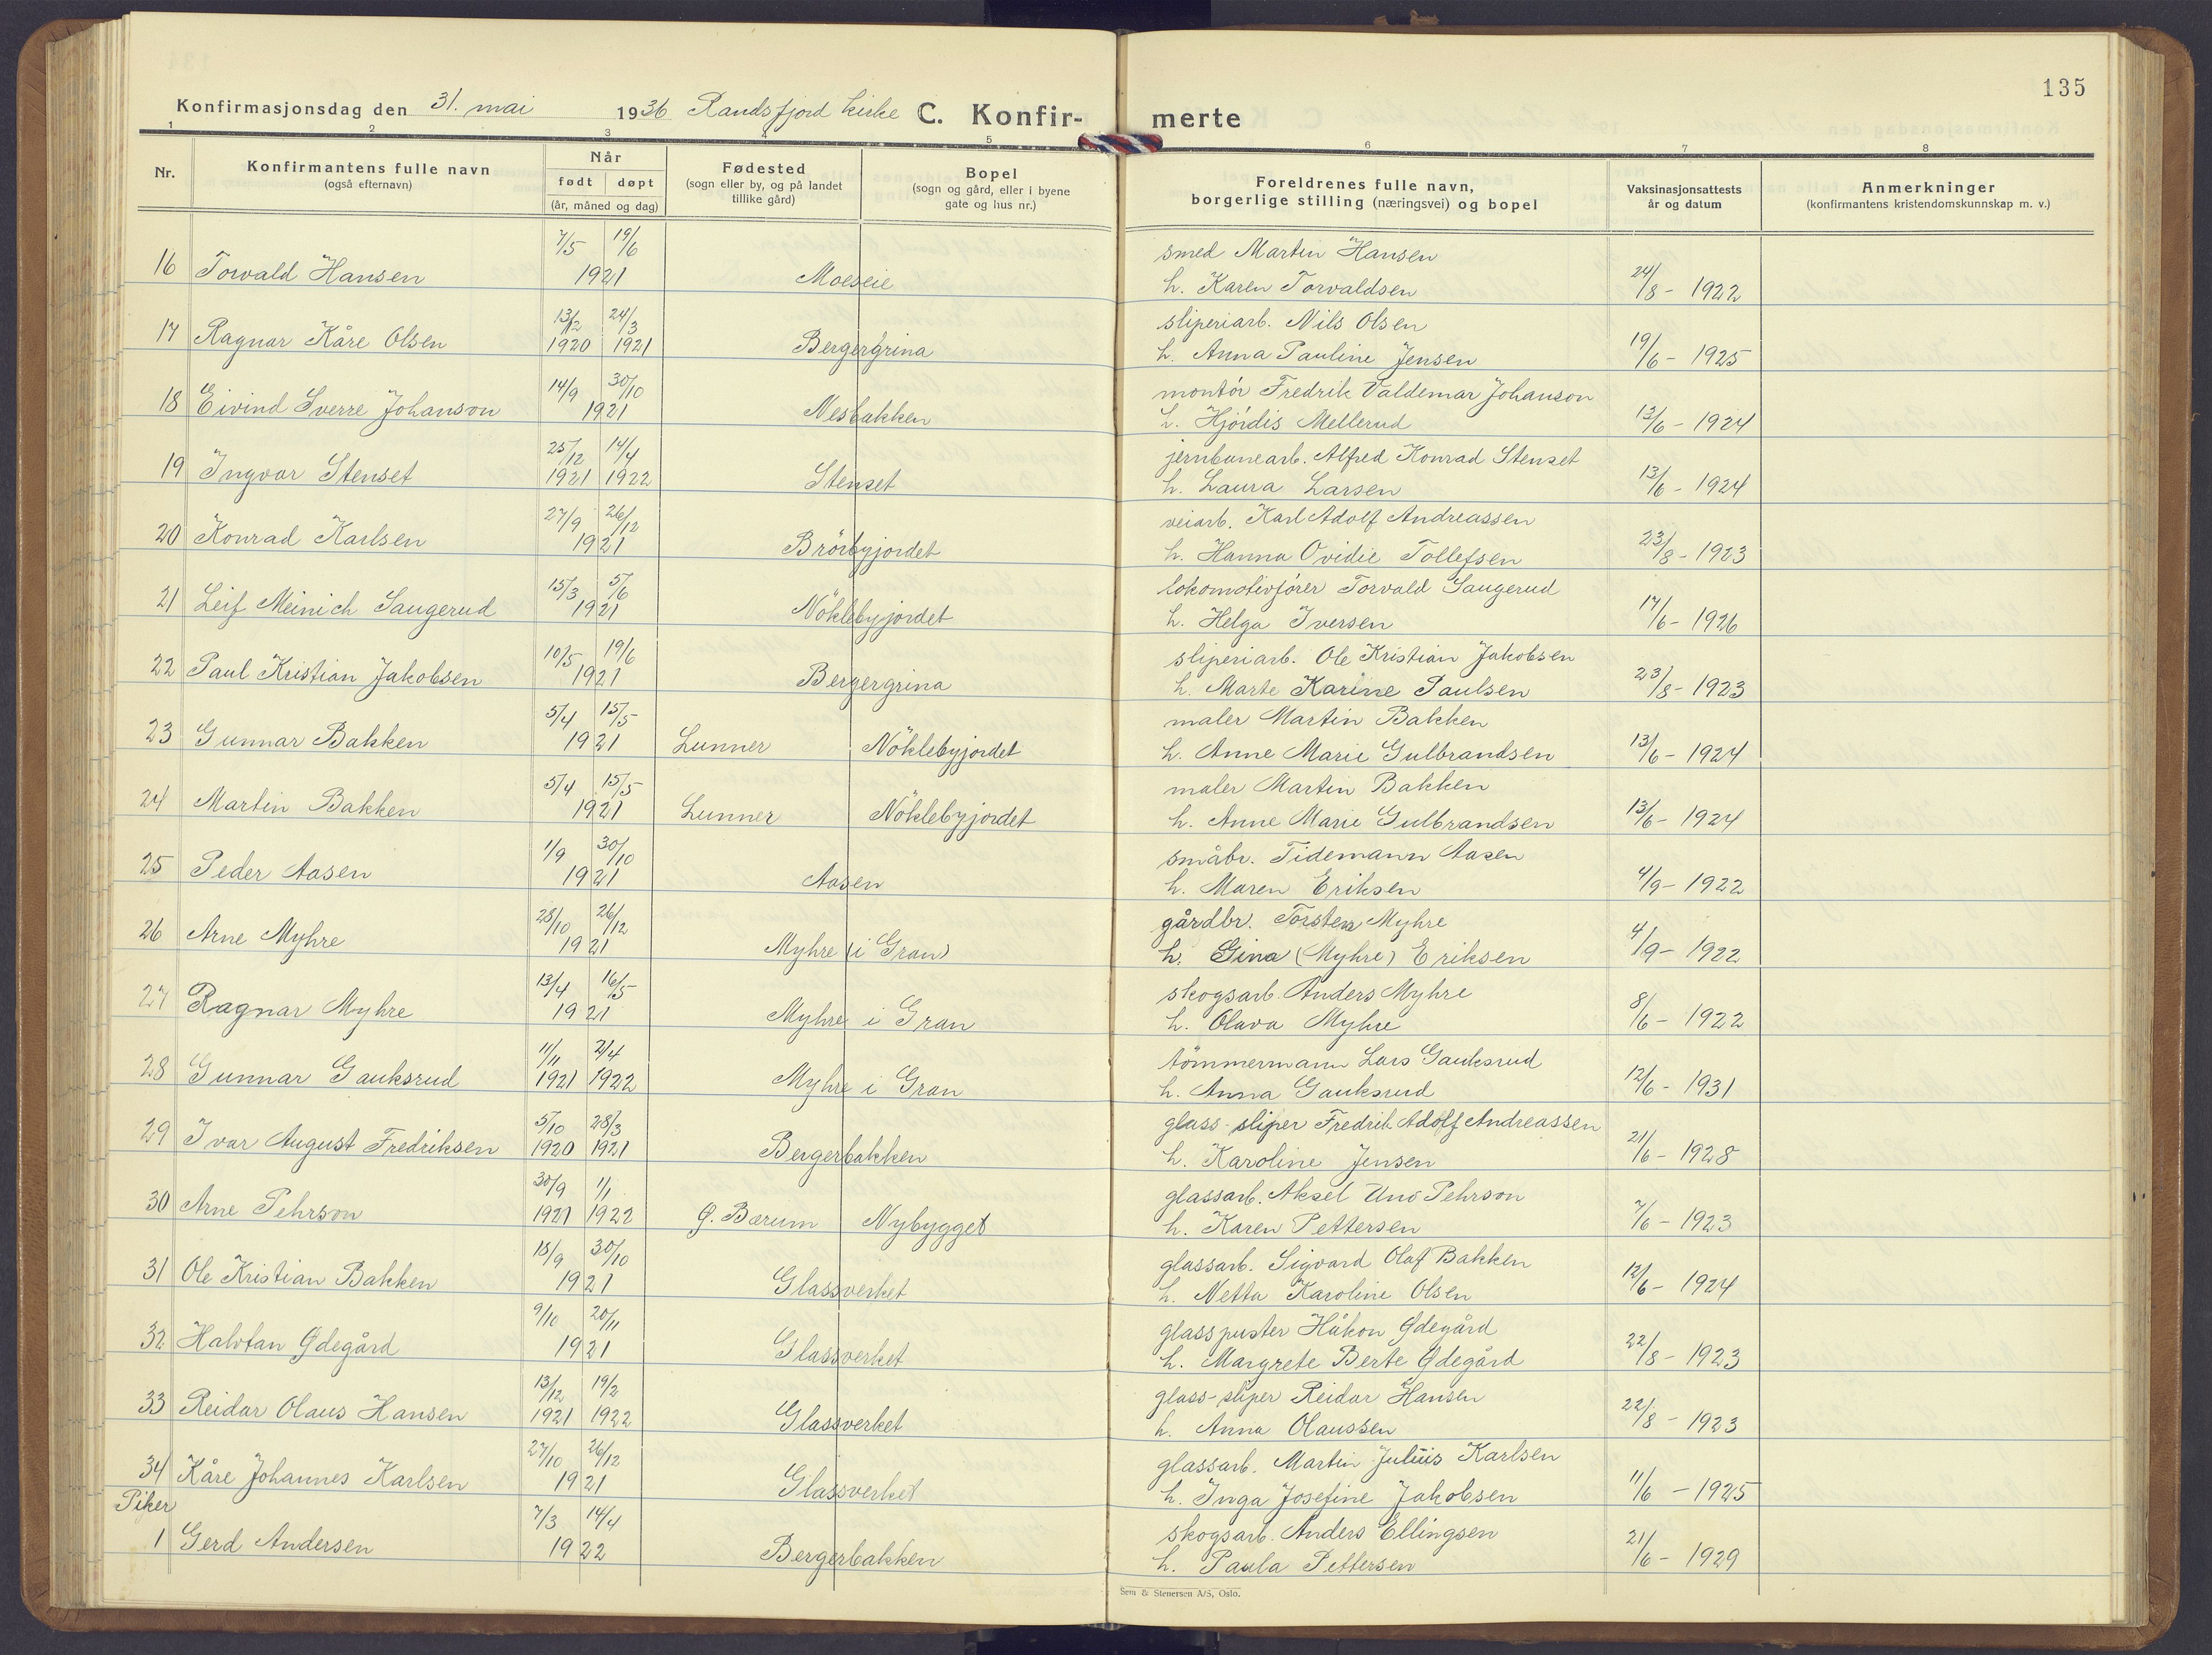 135
Konfirmasjonsdag den 31. mai 1936 Randsfjord kirke C. Konfir- merte
1 2 3 4 5 6 7 8
Nr. Konfirmantens fulle navn (også efternavn) Når født døpt (år, måned og dag) Fødested (sogn eller by, og på landet tillike gård) Bopel (sogn og gård, eller i byene gate og hus nr.) Foreldrenes fulle navn, borgerlige stilling (næringsvei) og bopel Vaksinasjonsattests år og datum Anmerkninger (konfirmantens kristendomskunnskap m. v.)
7/5 19/6 smed Martin Hansen
16 Torvald Hansen 1921 Moeseie h. Karen Torvaldsen 24/8 - 1922
13/12 24/3 sliperiarb. Nils Olsen
17 Ragnar Kåre Olsen 1920 1921 Bergergrina h. Anna Pauline Jensen 19/6 - 1925
14/9 30/10 montör Fredrik Valdemar Johanson
18 Eivind Sverre Johanson 1921 Nesbakken h. Hjördis Mellerud 13/6 - 1924
25/12 14/4 jernbanearb. Alfred Konrad Stenset
19 Ingvar Stenset 1921 1922 Stenset h. Laura Larsen 13/6 - 1924
27/9 26/12 veiarb. Karl Adolf Andreassen
20 Konrad Karlsen 1921 Brörbyjordet h. Hanna Ovidie Tollefsen 23/8 - 1923
15/3 5/6 lokomotivförer Torvald Saugerud
21 Leif Meinich Saugerud 1921 Nöklebyjordet h. Helga Iversen 17/6 - 1926
10/5 19/6 sliperiarb. Ole Kristian Jakobsen
22 Paul Kristian Jakobsen 1921 Bergergrina h. Marte Karine Paulsen 23/8 - 1923
5/4 15/5 maler Martin Bakken
23 Gunnar Bakken 1921 Lunner Nöklebyjordet h. Anne Marie Gulbrandsen 13/6 - 1924
5/4 15/5 maler Martin Bakken
24 Martin Bakken 1921 Lunner Nöklebyjordet h. Anne Marie Gulbrandsen 13/6 - 1924
1/9 30/10 småbr. Tidemann Aasen
25 Peder Aasen 1921 Aasen h. Maren Eriksen 4/9 - 1922
28/10 26/12 gårdbr. Torsten Myhre
26 Arne Myhre 1921 Myhre (i Gran) h. Gina (Myhre) Eriksen 4/9 - 1922
13/4 16/5 skogsarb. Anders Myhre
27 Ragnar Myhre 1921 Myhre i Gran h. Olava Myhre 8/6 - 1922
11/11 2/4 tömmermann Lars Gauksrud
28 Gunnar Gauksrud 1921 1922 Myhre i Gran h. Anna Gauksrud 12/6 - 1931
5/10 28/3 glass-sliper Fredrik Adolf Andreassen
29 Ivar August Fredriksen 1920 1921 Bergerbakken h. Karoline Jensen 21/6 - 1928
30/9 1/1 glassarb. Aksel Uno Pehrson
30 Arne Pehrson 1921 1922 Ø. Bærum Nybygget h. Karen Pettersen 7/6 - 1923
18/9 30/10 glassarb. Sigvard Olaf Bakken
31 Ole Kristian Bakken 1921 Glassverket h. Netta Karoline Olsen 12/6 - 1924
9/10 20/11 glasspuster Håkon Ødegård
32 Halvtan Ødegård 1921 Glassverket h. Margrete Berte Ødegård 22/8 - 1923
13/12 19/2 glass-sliper Reidar Hansen
33 Reidar Olaus Hansen 1921 1922 Glassverket h. Anna Olaussen 22/8 - 1923
27/10 26/12 glassarb. Martin Julius Karlsen
34 Kåre Johannes Karlsen 1921 Glassverket h. Inga Josefine Jakobsen 11/6 - 1925
Piker 7/3 14/4 skogsarb. Anders Ellingsen
1 Gerd Andersen 1922 Bergerbakken h. Paula Pettersen 21/6 - 1929
Sem & Stenersen A/S, Oslo.